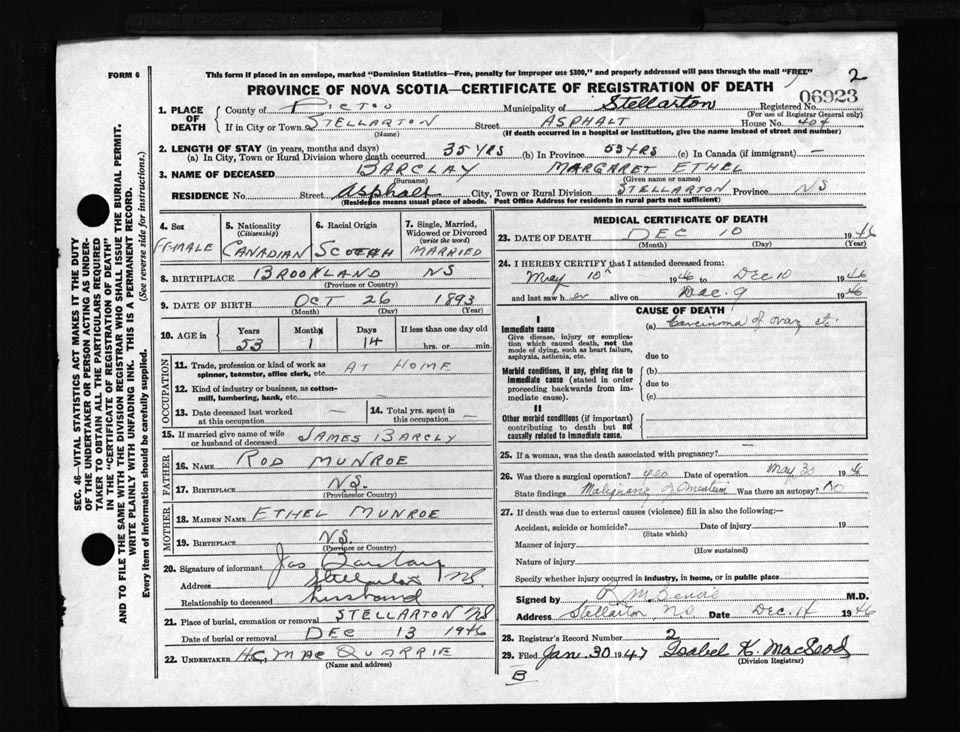 FORM 6
This form if placed in an envelope, marked "Dominion Statistics—Free, penalty for improper use $300," and properly addressed will pass through the mail "FREE"
2
PROVINCE OF NOVA SCOTIA—CERTIFICATE OF REGISTRATION OF DEATH
06923
1. PLACE OF DEATH
County of PICTOU Municipality of Stellarton Registered No.
(For use of Registrar General only)
If in City or Town STELLARTON Street ASPHALT House No. 404
(Name) (If death occurred in a hospital or institution, give the name instead of street and number)
2. LENGTH OF STAY (in years, months and days)
(a) In City, Town or Rural Division where death occurred 35 YRS (b) In Province 53 YRS (c) In Canada (if immigrant) —
3. NAME OF DECEASED BARCLAY MARGARET ETHEL
(Surname) (Given name or names)
RESIDENCE No. Street Asphalt City, Town or Rural Division STELLARTON Province NS
(Residence means usual place of abode. Post Office Address for residents in rural parts not sufficient)
SEC. 46—VITAL STATISTICS ACT MAKES IT THE DUTY
OF THE UNDERTAKER OR PERSON ACTING AS UNDER-
TAKER TO OBTAIN ALL THE PARTICULARS REQUIRED
IN THE "CERTIFICATE OF REGISTRATION OF DEATH"
AND TO FILE THE SAME WITH THE DIVISION REGISTRAR WHO SHALL ISSUE THE BURIAL PERMIT.
WRITE PLAINLY WITH UNFADING INK. THIS IS A PERMANENT RECORD.
Every item of information should be carefully supplied. (See reverse side for instructions.)
4. Sex FEMALE
5. Nationality (Citizenship) CANADIAN
6. Racial Origin SCOTCH
7. Single, Married, Widowed or Divorced (write the word) MARRIED
8. BIRTHPLACE BROOKLAND NS
(Province or Country)
9. DATE OF BIRTH OCT 26 1893
(Month) (Day) (Year)
10. AGE in Years 53 Months 1 Days 14 If less than one day old hrs. or min.
OCCUPATION
11. Trade, profession or kind of work as spinner, teamster, office clerk, etc. AT HOME
12. Kind of industry or business, as cotton-mill, lumbering, bank, etc.
13. Date deceased last worked at this occupation —
14. Total yrs. spent in this occupation —
15. If married give name of wife or husband of deceased JAMES BARCLY
FATHER
16. NAME ROD MUNROE
17. BIRTHPLACE N.S.
(Province or Country)
MOTHER
18. MAIDEN NAME ETHEL MUNROE
19. BIRTHPLACE N.S.
(Province or Country)
20. Signature of informant Jas Barclay
Address Stellarton NS
Relationship to deceased husband
21. Place of burial, cremation or removal STELLARTON NS
Date of burial or removal DEC 13 1946
22. UNDERTAKER H.C. MACQUARRIE
(Name and address)
MEDICAL CERTIFICATE OF DEATH
23. DATE OF DEATH DEC 10 1946
(Month) (Day) (Year)
24. I HEREBY CERTIFY that I attended deceased from:
May 10 1946 to Dec 10 1946
and last saw her alive on Dec. 9 1946
CAUSE OF DEATH
I
Immediate cause
Give disease, injury or complication which caused death, not the mode of dying, such as heart failure, asphyxia, asthenia, etc.
(a) Carcinoma of ovary etc.
due to
Morbid conditions, if any, giving rise to immediate cause (stated in order proceeding backwards from immediate cause).
(b)
due to
(c)
II
Other morbid conditions (if important) contributing to death but not causally related to immediate cause.
25. If a woman, was the death associated with pregnancy?
26. Was there a surgical operation? yes Date of operation May 30 1946
State findings Malignancy of Omentum Was there an autopsy? No
27. If death was due to external causes (violence) fill in also the following:—
Accident, suicide or homicide? Date of injury 19
(State which)
Manner of injury
(How sustained)
Nature of injury
Specify whether injury occurred in industry, in home, or in public place
Signed by M.D.
Address Stellarton, NS Date Dec. 14 1946
28. Registrar's Record Number 2
29. Filed Jan. 30 1947 Isabel K. MacLeod
(Division Registrar)
B